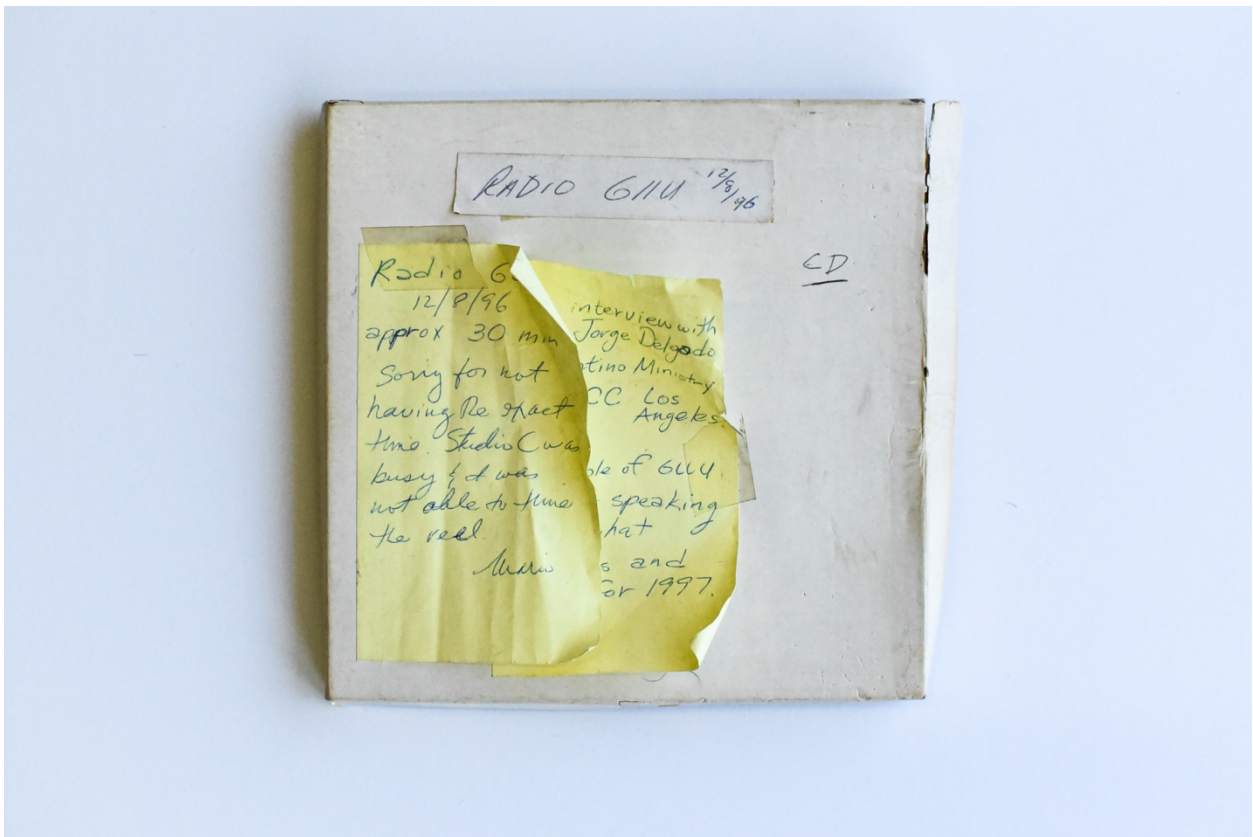 RADIO GLLU 12/8/96
CD
Radio G
12/8/96
approx 30 min
Sorry for not
having the exact
time. Studio C was
busy & I was
not able to time
the reel.
Mario
interview with
Jorge Delgado
Ministry
CC Los
Angeles.
of GLLU.
speaking
and
1997.